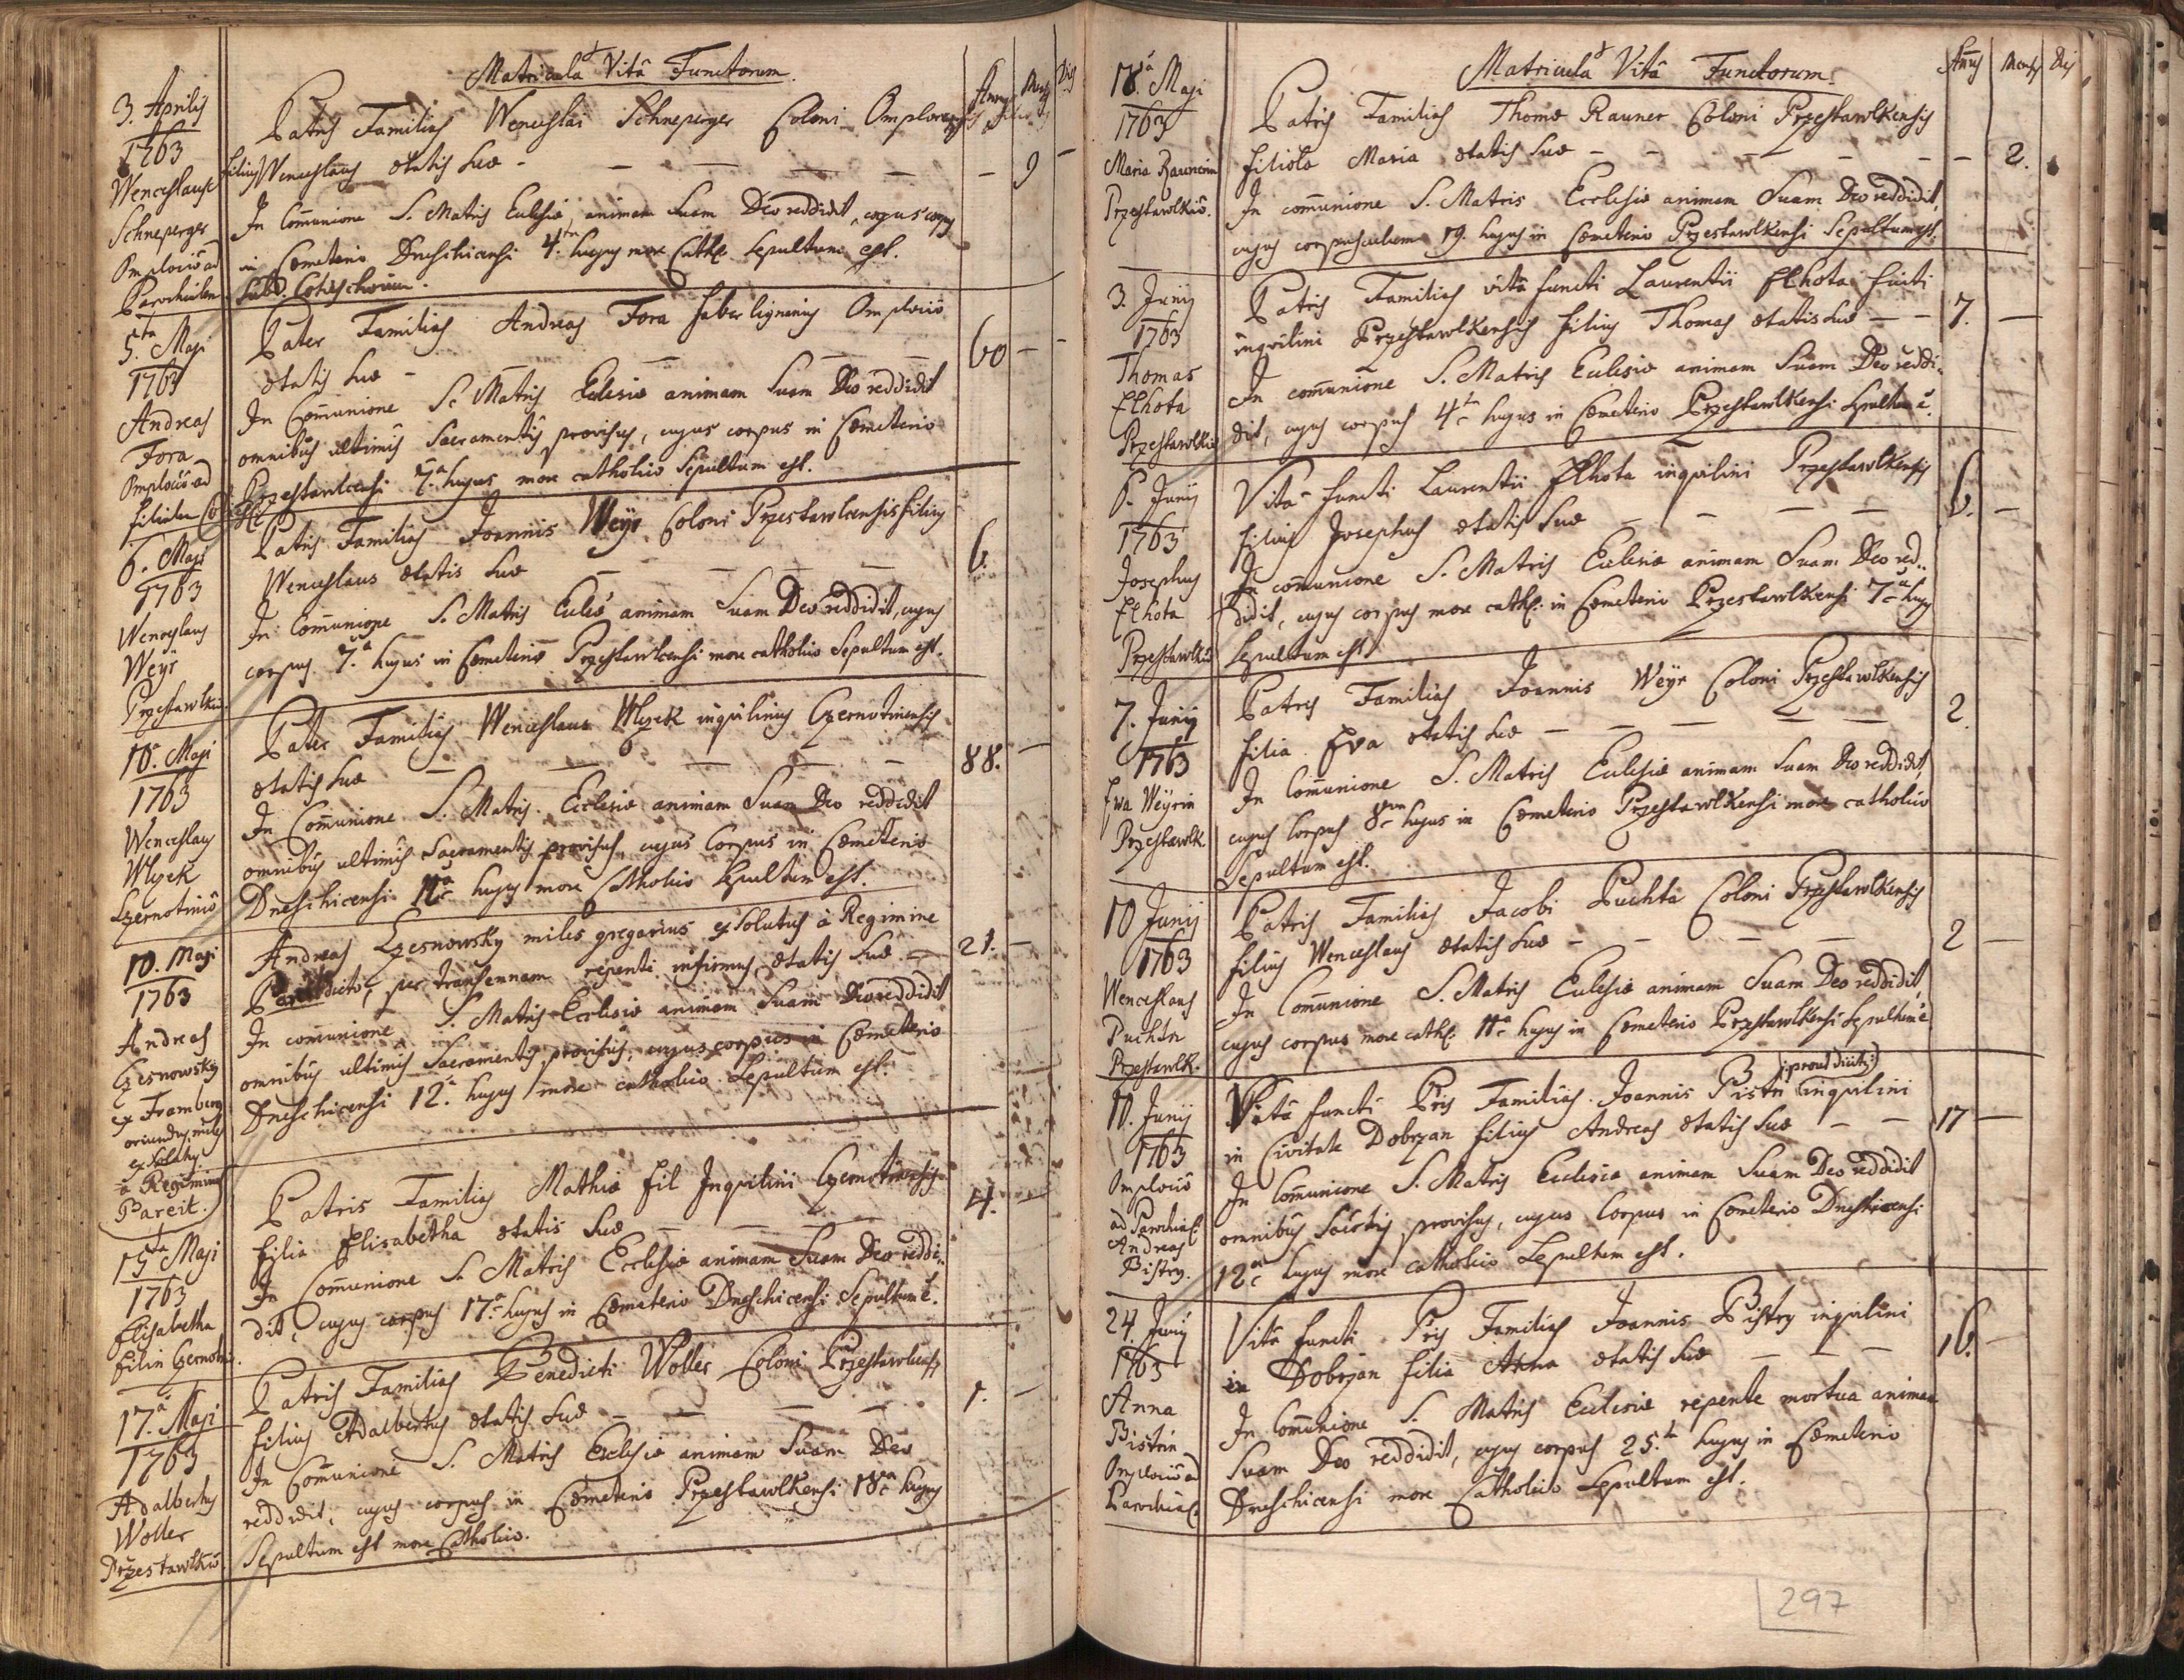 Matricula Vitâ Functorum.
3. Aprilis
1763
Wenceslaus
Schneperger
Parochialem
Patris Familias Wenceslai Schneperger Coloni
filius Wenceslaus ætatis suæ - - - - - 9 -
In Com̄unione S. Matris Eclesiæ, animam suam Deo reddidit, cujus corpus
in Cœmeterio Dneschicensi 4.ta hujus more Cathc. sepultum est.
5.ta Maji
1763
Andreas
Fora
Pater Familias Andreas Fora faber lignarius
ætatis suæ - - - - 60 - -
In Com̄unione S. Matris Eclesiæ animam suam Deo reddidit
omnibus ultimis Sacramentis provisus, cujus corpus in Cœmeterio
Przestawlcensi 7.a hujus more catholico sepultum est.
6. Maji
1763
Wenceslaus
Weÿr
Patris Familias Joannis Weÿr Coloni Przestawlcensis filius
Wenceslaus ætatis suæ - - - 6.
In Com̄unione S. Matris Eclesiæ animam suam Deo reddidit, cujus
corpus 7.a hujus in Cœmeterio Przestawlcensi more catholico sepultum est.
10.a Maji
1763
Wenceslaus
Wlczek
Pater Familias Wenceslaus Wlczek inquilinus Czernotinensis
ætatis suæ - - - - - 88. -
In Com̄unione S. Matris Ecclesiæ animam suam Deo reddidit
omnibus ultimis Sacramentis provisus, cujus Corpus in Cœmeterio
Dneschicensi 11.a hujus more Catholico sepultum est.
10. Maji
1763
Andreas
Czesnowsky
ex Framberg
oriundus, miles
à Regimine
Pareit.
Andreas Czesnowsky miles gregarius exsolutus à Regimine
per transennam repenti infirmus ætatis suæ - 21. -
In com̄unione S. Matris Ecclesiæ animam suam Deo reddidit
omnibus ultimis Sacramentis provisus, cujus corpus in Cœmeterio
Dneschicensi 12.a hujus more catholico sepultum est.
15ta Maji
1763
Elisabetha
Patris Familias Mathiæ Fil Inquilini Czernotinensis
filia Elisabetha ætatis suæ - - - 4. -
In Com̄unione S. Matris Ecclesiæ animam suam Deo reddi-
dit, cujus corpus 17.a hujus in Cœmeterio Dneschicensi sepultum ē.
17.a Maji
1763
Adalbertus
Woller
Przestawlkio
Patris Familias Benedicti Woller Coloni Przestawlcensis
filius Adalbertus ætatis suæ - - - 1. -
In Com̄unione S. Matris Ecclesiæ animam suam Deo
reddidit, cujus corpus in Cœmeterio Przestawlkensi 18.a hujus
sepultum est more Catholico.
Matricula Vitâ Functorum.
18.a Maji
1763
Maria Raunerin
Przestawlkio.
Patris Familias Thomæ Rauner Coloni Przestawlkensis
filiola Maria ætatis suæ - - - - - - 2.
In com̄unione S. Matris Ecclesiæ animam suam Deo reddidit,
cujus corpusculum 19. hujus in Cœmeterio Przestawlkensi sepultum est.
3. Junij
1763
Thomas
Elhota
Przestawlkio
Patris Familias vitâ functi Laurentii Elhota
inquilini Przestawlkensis filius Thomas ætatis suæ - - 7. -
In com̄unione S. Matris Eclesiæ animam suam Deo reddi-
dit, cujus corpus 4.ta hujus in Cœmeterio Przestawlkensi sepultum ē.
6. Junij
1763
Josephus
Elhota
Przestawlkio
Vitâ functi Laurentii Elhota inquilini Przestawlkensis
filius Josephus ætatis suæ - - - - 6. -
In com̄unione S. Matris Eclesiæ animam suam Deo red-
didit, cujus corpus more cathc. in Cœmeterio Przestawlkensi 7.a hujus
sepultum est.
7. Junij
1763
Ewa Weyrin
Przestawlk
Patris Familias Joannis Weÿr Coloni Przestawlkensis
filia Eva ætatis suæ - - - - 2.
In Com̄unione S. Matris Eclesiæ animam suam Deo reddidit,
cujus Corpus 8va hujus in Cœmeterio Przestawlkensi more catholico
sepultum est.
10 Junij
1763
Wenceslaus
Puchta
Przestawlk.
Patris Familias Jacobi Puchta Coloni Przestawlkensis
filius Wenceslaus ætatis suæ - - - - 2 -
In Com̄unione S. Matris Eclesiæ animam suam Deo reddidit,
cujus corpus more cathc. 11.a hujus in Cœmeterio Przestawlkensi sepultum ē
10. Junij
1763
Andreas
Bistry.
Vitâ functi Pris Familias Joannis Bistri inquilini
in Civitate Dobrzan filius Andreas ætatis suæ - - 17 -
In Com̄unione S. Matris Ecclesiæ animam suam Deo reddidit
omnibus provisus, cujus Corpus in Cœmeterio Dneschicensi
12.a hujus more catholico sepultum est.
24. Junij
1763
Anna
Bistrin
Vitâ functi Pris Familias Joannis Bistry inquilini
in Dobrzan filia Anna ætatis suæ - - - 16. -
In Com̄unione S. Matris Eclesiæ repente mortua animam
suam Deo reddidit, cujus corpus 25.ta hujus in Cœmeterio
Dneschicensi more Catholico sepultum est.
297